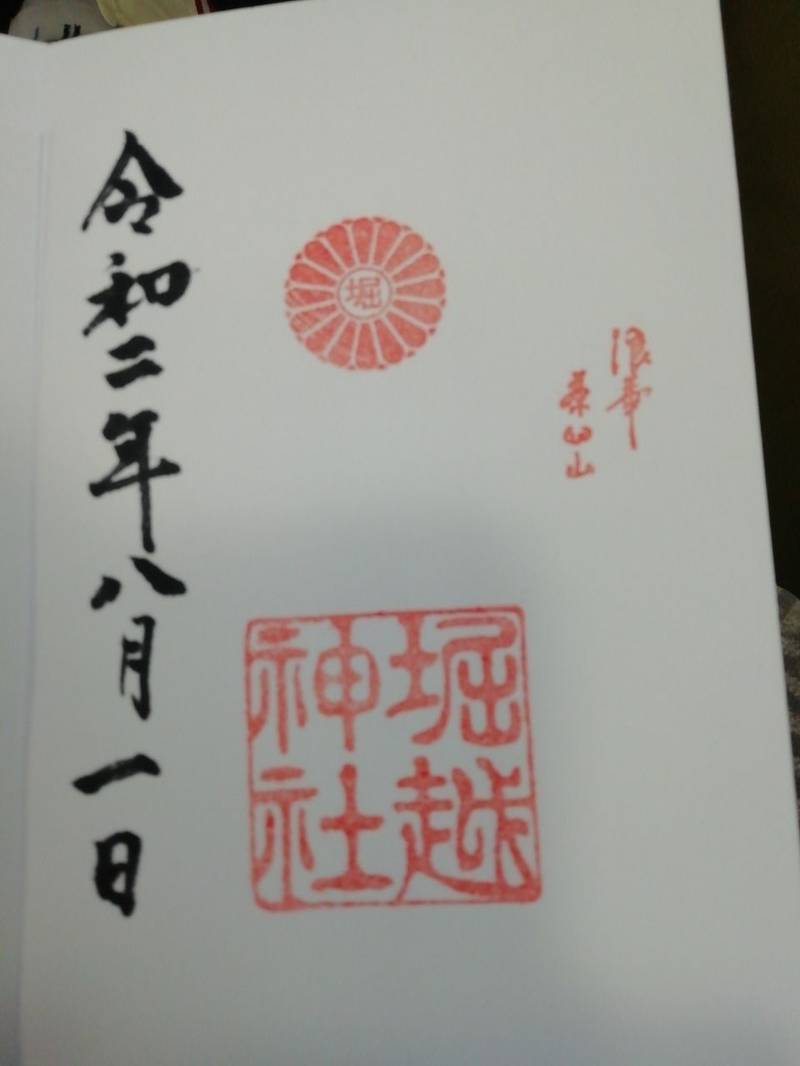 浪華
茶臼山
堀
堀越
神社
令和二年八月一日